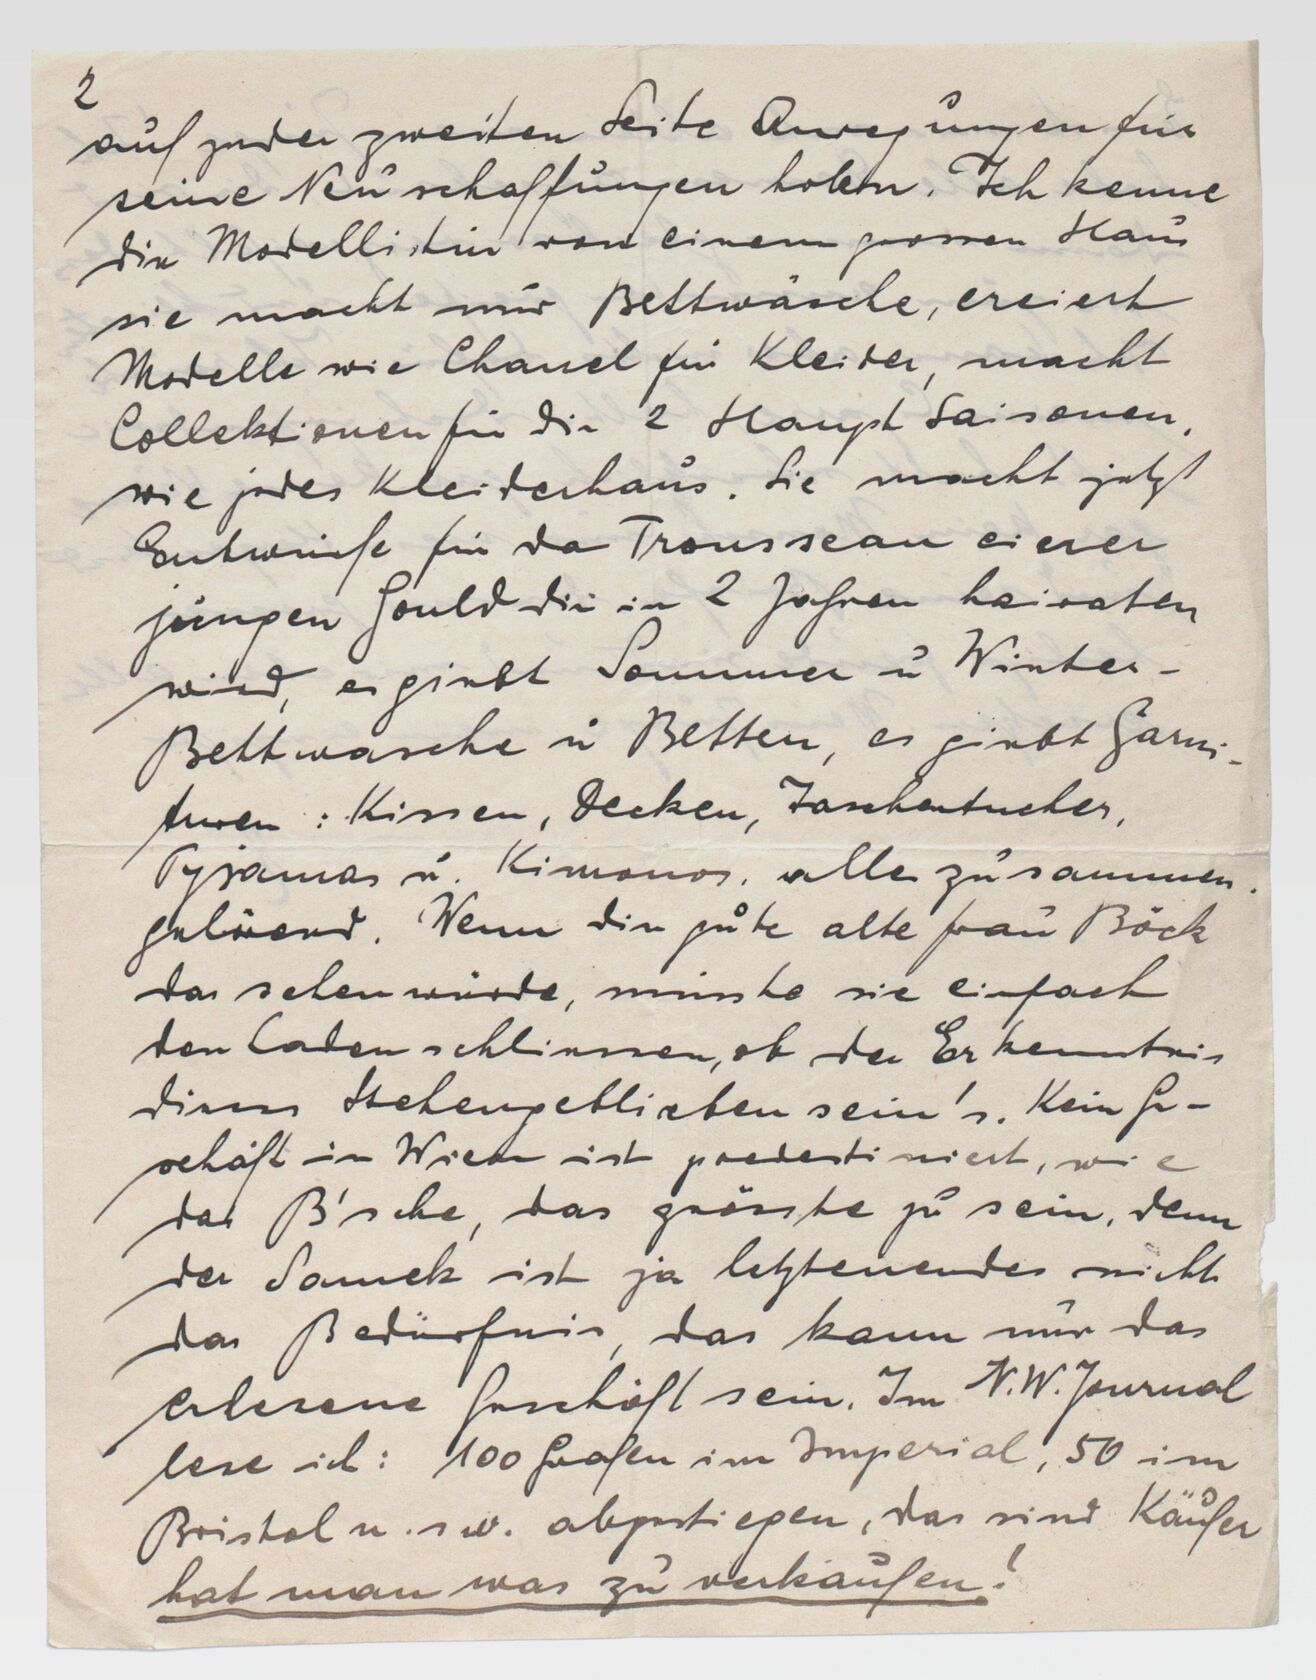 2
auf jeder zweiten Seite Anregungen für
seine Neuschaffungen holen. Ich kenne
die Modellistin von einem grossen Haus
sie macht nur Bettwäsche, creiert
Modelle wie Chanel für Kleider, macht
Collektionen für die 2 Haupt Saisonen,
wie jedes Kleiderhaus. Sie macht jetzt
Entwürfe für da Trousseau einer
jungen Gould die in 2 Jahren heiraten
wird, es giebt Sommer u Winter-
Bettwasche u Betten, es giebt Garni-
turen: Kissen, Decken, Taschentucher,
Pyjamas u. Kimonos, alles zusammen
gehörend. Wenn die gute alte frau Böck
das sehen würde, müsste sie einfach
den Laden schliessen, ob der Erkenntnis
dieses Stehengebliebensein's. Kein Ge-
schäft in Wien ist predestiniert, wie
das B'sche, das grösste zu sein, denn
der Samek ist ja letztenendes nicht
das Bedürfnis, das kann nur das
erlesene Geschäft sein. Im N.W. Journal
lese ich: 100 Grafen im Imperial, 50 im
Bristol u.s.w. abgestiegen, das sind Käufer
hat man was zu verkaufen!